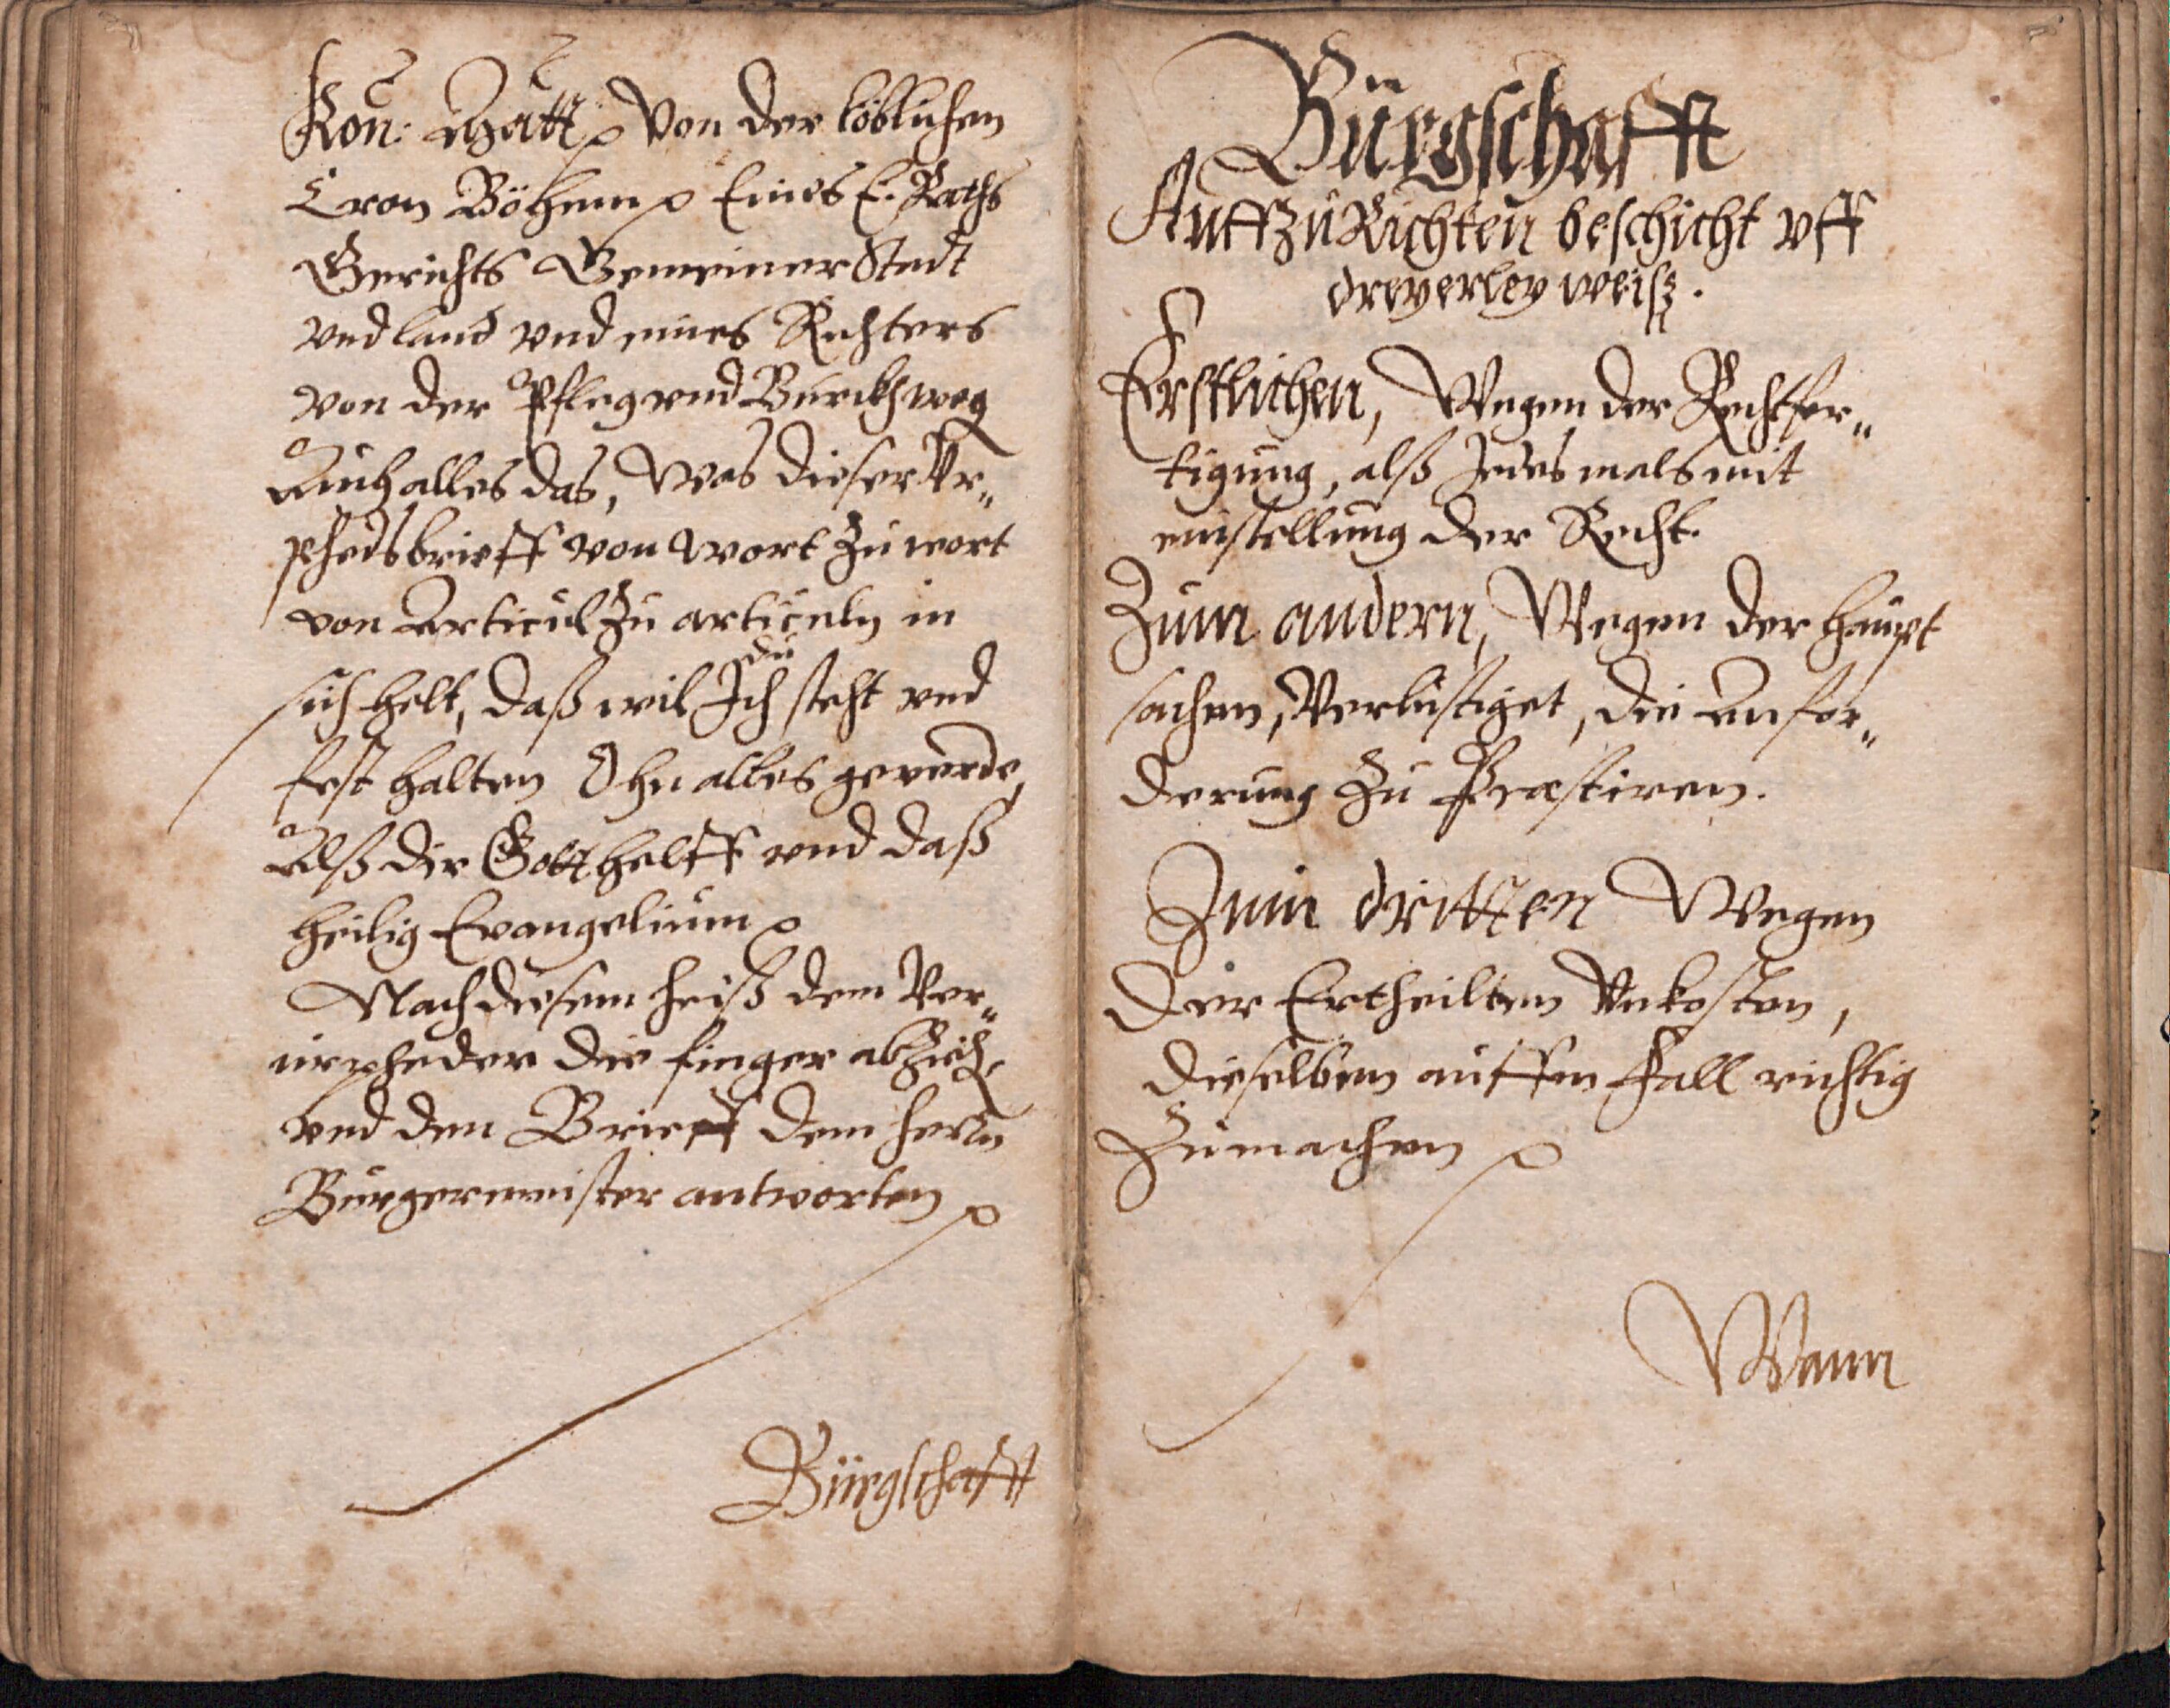 Kön: Maÿtt: von der löblichen
Cron Böhem Eines E. Raths
Gerichts Gemeiner Stedt
vnd land vnd eines Richters
von der Pfleg vnd Burckh weg
Auch alles das, Was dieser Vr„
phedsbrieff von wort zu wort
von Articul zu articuln in
du
sich helt, daß wil Ich steht vnd
fest halten Ohn alles geverde,
Alß dir Gott helff vnd daß
heilig Evangelium
Nach diesem heiß dem Ver„
urpheder die finger abZieh,
vnd den Brieff dem herrn
Bürgermeister antworten
Bürgschafft
Bürgschafft
Auffzurichten beschicht vff
dreyerley weisz.
Erstlichen, Wegen der Rechtfer„
tigung, alß Jedes mals mit
einstellung der Recht.
Zum andern, Wegen der haupt
sachen, Verlustiget, die anfor„
derung Zu Præstiren.
Zum dritten Wegen
der Ertheilten Vnkosten,
dieselben auffm Fall richtig
Zumachen
Wann